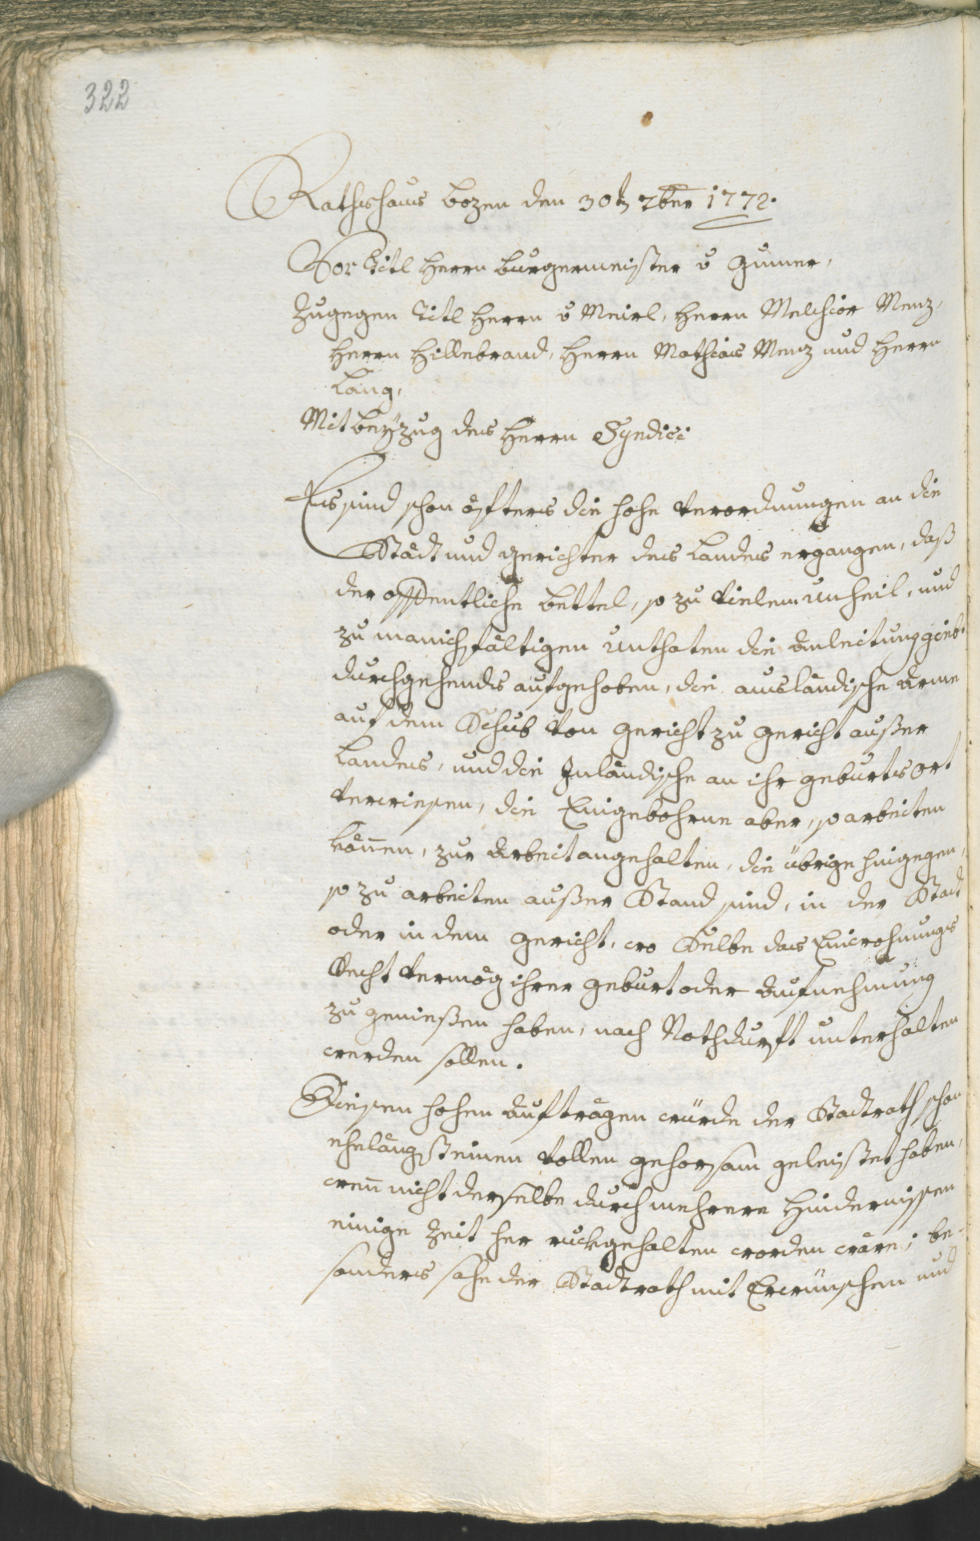 322
Rathshaus Bozen den 30t 7ber 1772.
Vor Titl Herrn Burgermeister v Gumer,
Zugegen Titl Herrn v Meirl, Herrn Melchior Menz,
Herrn Hillebrand, Herrn Mathias Menz und Herrn
Lang,
Mit beyzug des Herrn Syndici
Es sind schon öfters die hohe Verordnungen an die
Städt und Gerichter des Landes ergangen, daß
der offentliche Bettel, so zu vielem Unheil, und
zu manichfältigen Unthaten die Anleitung giebt
durchgehends aufgehoben, die ausländische Arme
auf dem Schub von Gericht zu Gericht außer
Landes, und die Inländische an ihr geburts Ort
verwiesen, die Eingebohrne aber, so arbeiten
können, zur Arbeit angehalten, die übrige hingegen,
so zu arbeiten außer Stand sind, in der Stadt
oder in dem Gericht, wo Selbe das Einwohnungs
Recht vermög ihrer geburt oder Aufnehmung
zu genießen haben, nach Nothdurft unterhalten
werden sollen.
Diesen hohen Aufträgen würde der Stadtrath schon
ehelängst einen vollen gehorsam geleistet haben,
wenn nicht derselbe durch mehrere Hindernissen
einige Zeit her ruckgehalten worden wäre; be-
sonders sahe der Stadtrath mit Erwünschen und